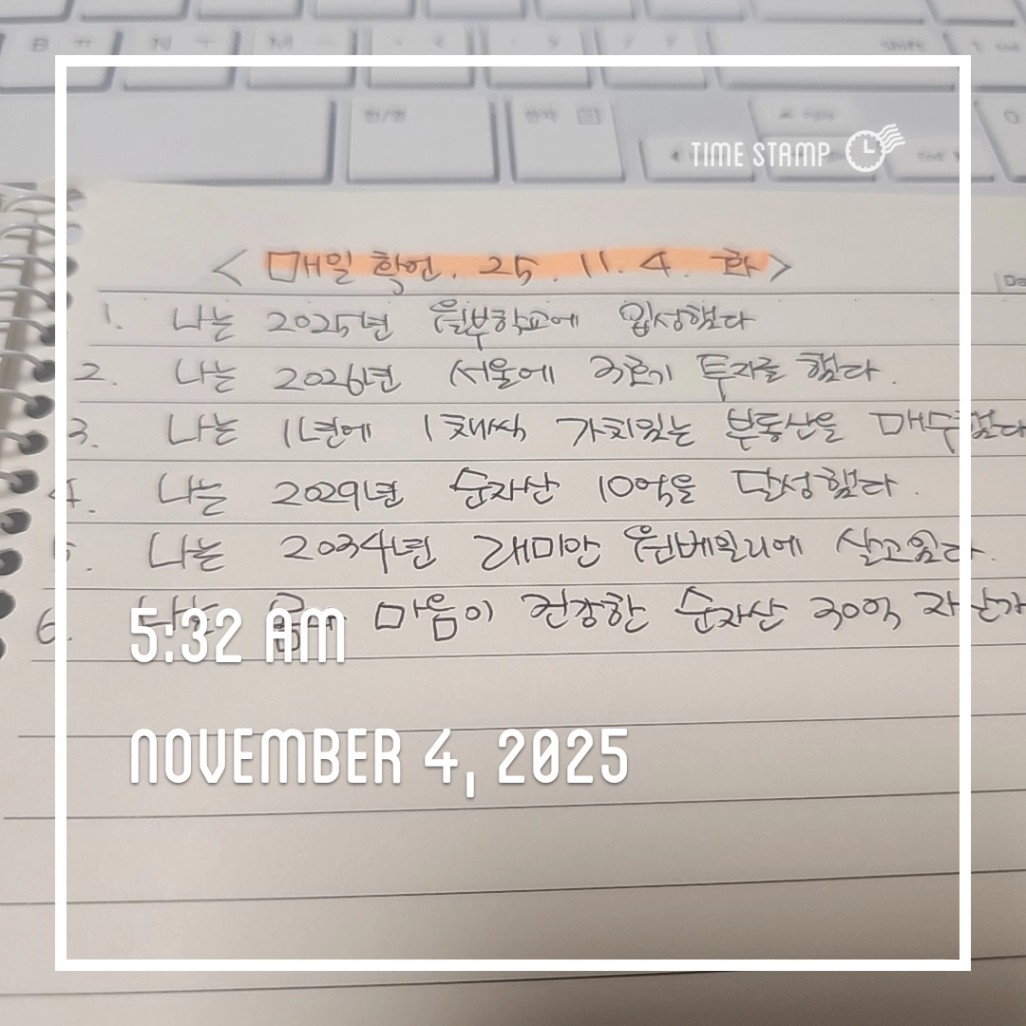 Shift
한/영
한자
TIME STAMP
< 매일 확언. 25. 11. 4. 화>
Da
1. 나는 2025년 월부학교에 입성했다
2. 나는 2026년 서울에 3호기 투자를 했다.
3. 나는 1년에 1채씩 가치있는 부동산을 매수했다
4. 나는 2029년 순자산 10억을 달성했다.
5. 나는 2034년 래미안 원베일리에 살고있다.
6. 나는 마음이 건강한 순자산 30억 자산가
5:32 AM
NOVEMBER 4, 2025